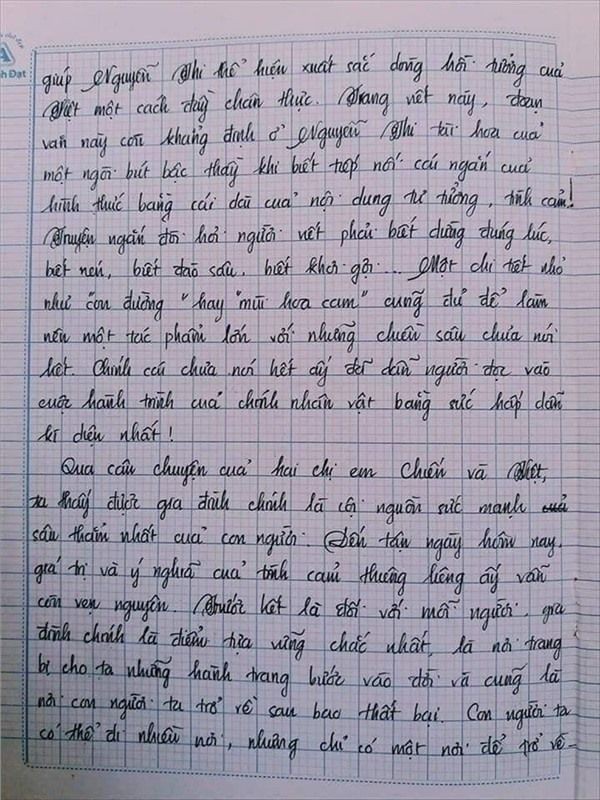 nh Đạt
giúp Nguyễn Thi thể hiện xuất sắc dòng hồi tưởng của
Việt một cách đầy chân thực. Trang viết này, đoạn
văn này còn khẳng định ở Nguyễn Thi tài hoa của
một ngòi bút bậc thầy khi biết tiếp nối cái ngắn của
hình thức bằng cái dài của nội dung tư tưởng, tình cảm!
Truyện ngắn đòi hỏi người viết phải biết dừng đúng lúc,
biết nén, biết đào sâu, biết khơi gợi... Một chi tiết nhỏ
như "con đường" hay "mùi hoa cam" cũng đủ để làm
nên một tác phẩm lớn với những chiều sâu chưa nói
hết. Chính cái chưa nói hết ấy để dẫn người đọc vào
cuộc hành trình của chính nhân vật bằng sức hấp dẫn
kì diệu nhất!
Qua câu chuyện của hai chị em Chiến và Việt,
ta thấy được gia đình chính là cội nguồn sức mạnh
sâu thẳm nhất của con người. Đến tận ngày hôm nay,
giá trị và ý nghĩa của tình cảm thiêng liêng ấy vẫn
còn vẹn nguyên. Trước hết là đối với mỗi người, gia
đình chính là điểm tựa vững chắc nhất, là nơi trang
bị cho ta những hành trang bước vào đời và cũng là
nơi con người ta trở về sau bao thất bại. Con người ta
có thể đi nhiều nơi, nhưng chỉ có một nơi để trở về -